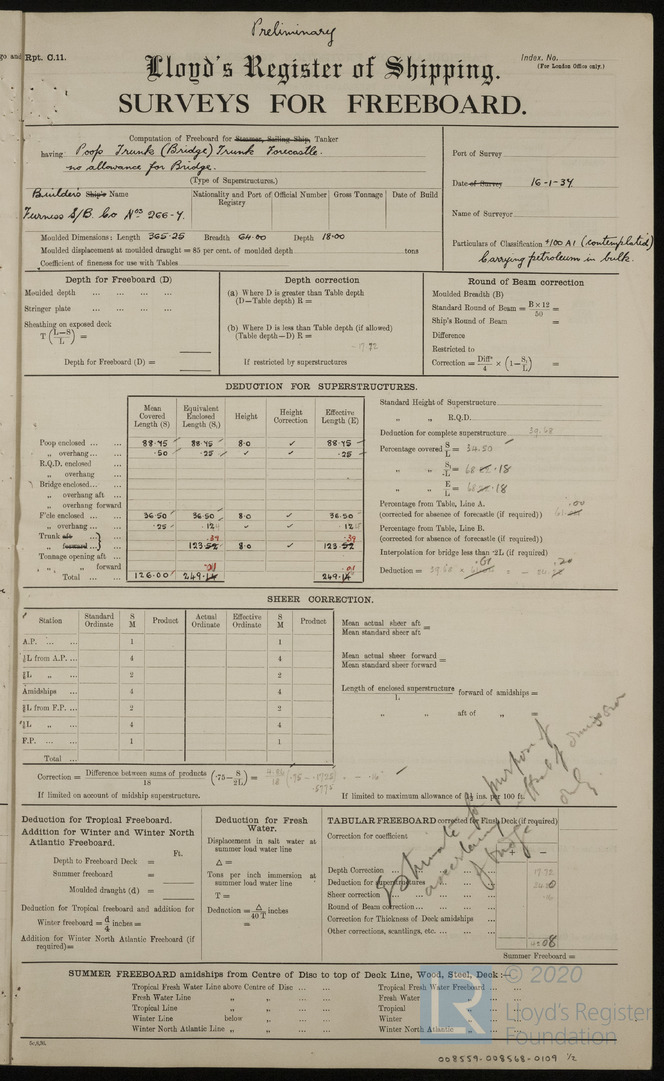 Preliminary
Rpt. C.11.
Index. No.
(For London Office only.)
Lloyd's Register of Shipping.
SURVEYS FOR FREEBOARD.
Computation of Freeboard for Steamer, Sailing Ship, Tanker
having Poop Trunk (Bridge) Trunk Forecastle.
no allowance for Bridge.
(Type of Superstructures.)
Port of Survey
Date of Survey 16-1-34
Name of Surveyor
Particulars of Classification +100 A1 (contemplated)
Carrying petroleum in bulk.
Builders Ship's Name
Nationality and Port of Registry
Official Number
Gross Tonnage
Date of Build
Furness S/B. Co Nos 266-7.
Moulded Dimensions: Length 365.25 Breadth 64.00 Depth 18.00
Moulded displacement at moulded draught = 85 per cent. of moulded depth tons
Coefficient of fineness for use with Tables
Depth for Freeboard (D)
Moulded depth ... ... ... ...
Stringer plate ... ... ... ...
Sheathing on exposed deck
T (L-S/L) =
Depth for Freeboard (D) =
Depth correction
(a) Where D is greater than Table depth
(D—Table depth) R =
(b) Where D is less than Table depth (if allowed)
(Table depth—D) R =
If restricted by superstructures
Round of Beam correction
Moulded Breadth (B)
Standard Round of Beam = B × 12 / 50 =
Ship's Round of Beam =
Difference
Restricted to
Correction = Diff. / 4 × (1 - S₁/L) =
DEDUCTION FOR SUPERSTRUCTURES.
Mean Covered Length (S)
Equivalent Enclosed Length (S₁)
Height
Height Correction
Effective Length (E)
Poop enclosed ... ... 88.45 88.45 8.0 ✓ 88.45
„ overhang ... ... .50 .25 ✓ ✓ .25
R.Q.D. enclosed ...
„ overhang
Bridge enclosed... ...
„ overhang aft ...
„ overhang forward
F'cle enclosed ... ... 36.50 36.50 8.0 ✓ 36.50
„ overhang ... ... .25 .12
Trunk aft ...
„ forward ... 123.52 8.0 ✓ 123.52
Tonnage opening aft ...
„ „ forward
Total ... ... 126.00 249.14 249.14
Standard Height of Superstructure
„ „ R.Q.D.
Deduction for complete superstructure 39.68
Percentage covered S/L = 34.50
„ „ S₁/L = 68.18
„ „ E/L = 68.18
Percentage from Table, Line A.
(corrected for absence of forecastle (if required))
Percentage from Table, Line B.
(corrected for absence of forecastle (if required))
Interpolation for bridge less than ·2L (if required)
Deduction =
SHEER CORRECTION.
Station
Standard Ordinate
S M
Product
Actual Ordinate
Effective Ordinate
S M
Product
A.P. ... ... 1 1
⅙L from A.P. ... 4 4
⅓L „ ... 2 2
Amidships ... 4 4
⅓L from F.P. ... 2 2
⅙L „ ... 4 4
F.P. ... ... 1 1
Total ...
Mean actual sheer aft =
Mean standard sheer aft =
Mean actual sheer forward =
Mean standard sheer forward =
Length of enclosed superstructure / L forward of amidships =
„ „ aft of „ =
Correction = Difference between sums of products / 18 (·75 - S/2L) =
If limited on account of midship superstructure.
If limited to maximum allowance of 1½ ins. per 100 ft.
Estimate for purpose of
ascertaining effect of omission
of bridge only.
Deduction for Tropical Freeboard.
Addition for Winter and Winter North Atlantic Freeboard.
Ft.
Depth to Freeboard Deck =
Summer freeboard =
Moulded draught (d) =
Deduction for Tropical freeboard and addition for
Winter freeboard = d/4 inches =
Addition for Winter North Atlantic Freeboard (if required)=
Deduction for Fresh Water.
Displacement in salt water at summer load water line
Δ =
Tons per inch immersion at summer load water line
T =
Deduction = Δ / 40 T inches
=
TABULAR FREEBOARD corrected for Flush Deck (if required)
Correction for coefficient
+ -
Depth Correction ... ...
Deduction for superstructures
Sheer correction ... ...
Round of Beam correction... ...
Correction for Thickness of Deck amidships
Other corrections, scantlings, etc. ... ...
Summer Freeboard =
SUMMER FREEBOARD amidships from Centre of Disc to top of Deck Line, Wood, Steel, Deck:—
Tropical Fresh Water Line above Centre of Disc ... ...
Fresh Water Line „ „ ... ...
Tropical Line „ „ ... ...
Winter Line below „ ... ...
Winter North Atlantic Line „ „ ... ...
Tropical Fresh Water Freeboard ...
Fresh Water „
Tropical „
Winter „
Winter North Atlantic „
LR
© 2020
Lloyd's Register
Foundation
008559-008568-0109 1/2